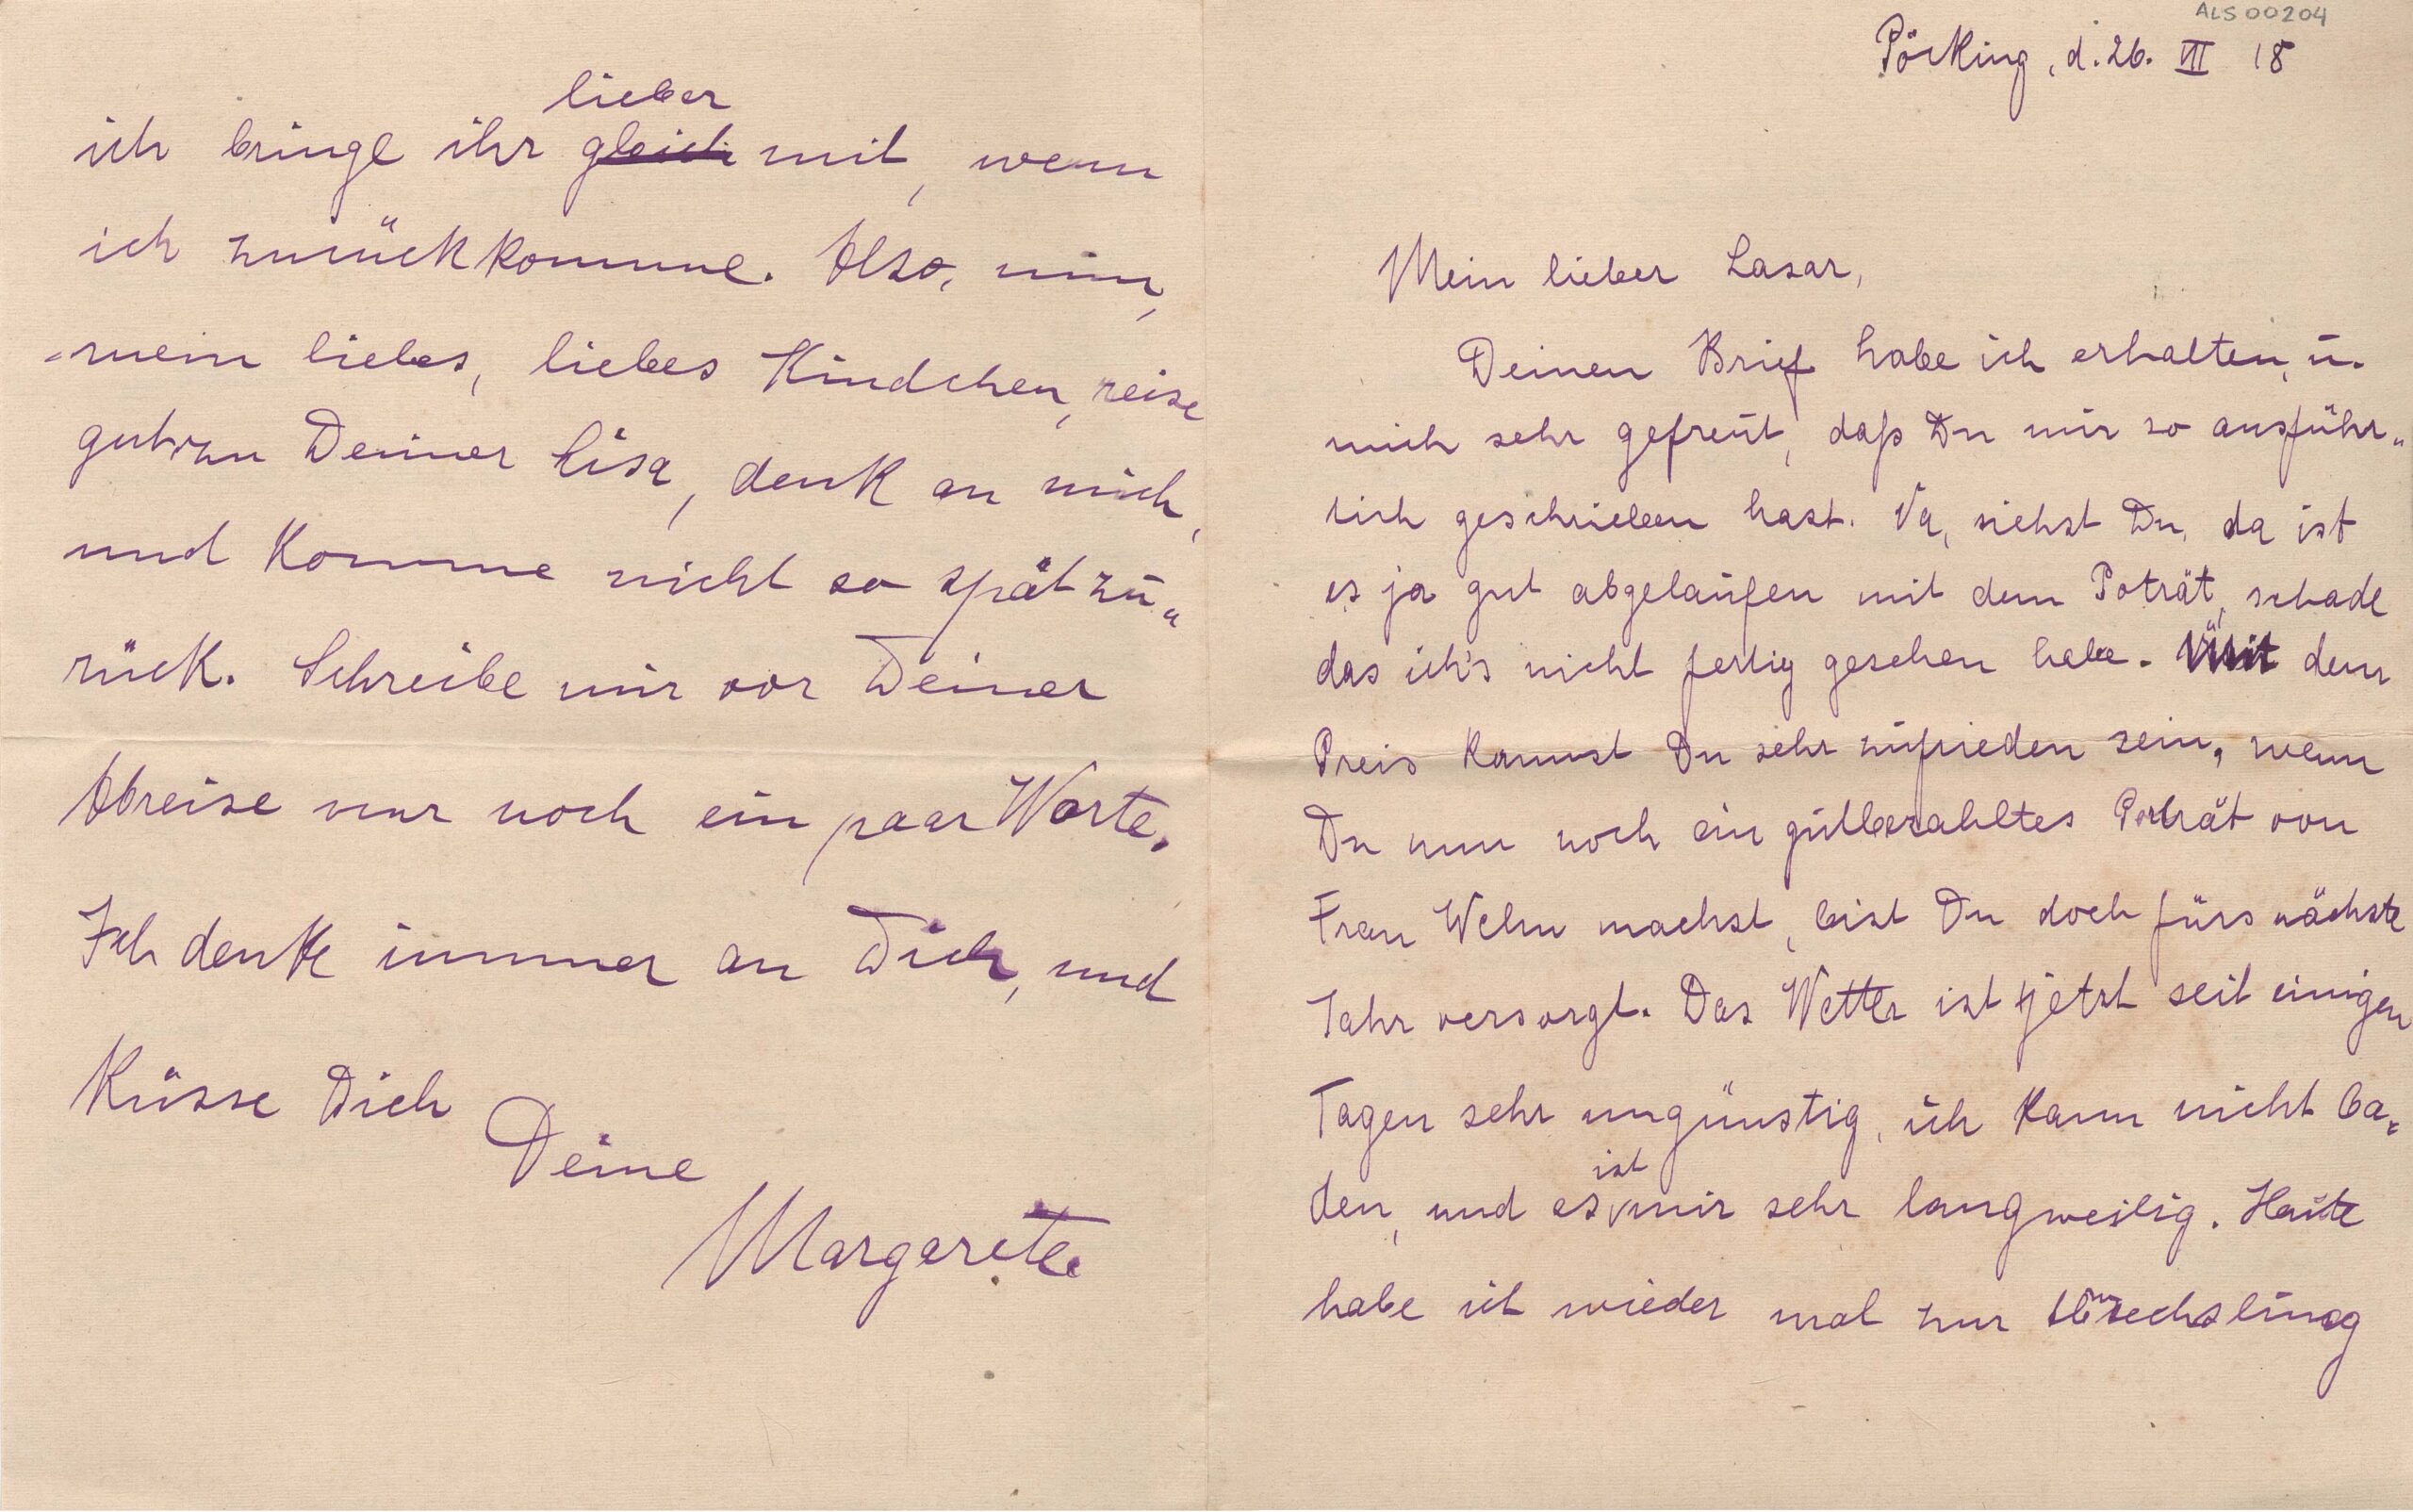 ALS 00204
Pöcking, d. 26. VII 18
Mein lieber Lasar,
Deinen Brief habe ich erhalten, u.
mich sehr gefreut, daß Du mir so ausführ„
lich geschrieben hast. Na, siehst Du, da ist
es ja gut abgelaufen mit dem Poträt, schade
das ich's nicht fertig gesehen habe. Mit dem
Preis kannst Du sehr zufrieden sein, wenn
Du nun noch ein gutbezahltes Porträt von
Frau machst, bist Du doch fürs nächste
Jahr versorgt. Das Wetter ist jetzt seit einigen
Tagen sehr ungünstig, ich kann nicht ba„
ist
den, und es mir sehr langweilig. Heute
habe ich wieder mal zur Abwechslung
lieber
ich bringe ihr gleich mit, wenn
ich zurückkomme. Also, nun,
mein liebes, liebes Kindchen, reise
gut zu Deiner Lisa, denk an mich,
und komme nicht so spät zu„
rück. Schreibe mir vor Deiner
Abreise nur noch ein paar Worte.
Ich denke immer an Dich, und
Küsse Dich
Deine
Margarete